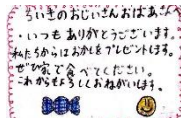 ちいきのおじいさんおばあさん
・いつもありがとうございます。
私たちからはおかしをプレゼントします。
ぜひ家で食べてください。
これからもよろしくおねがいします。